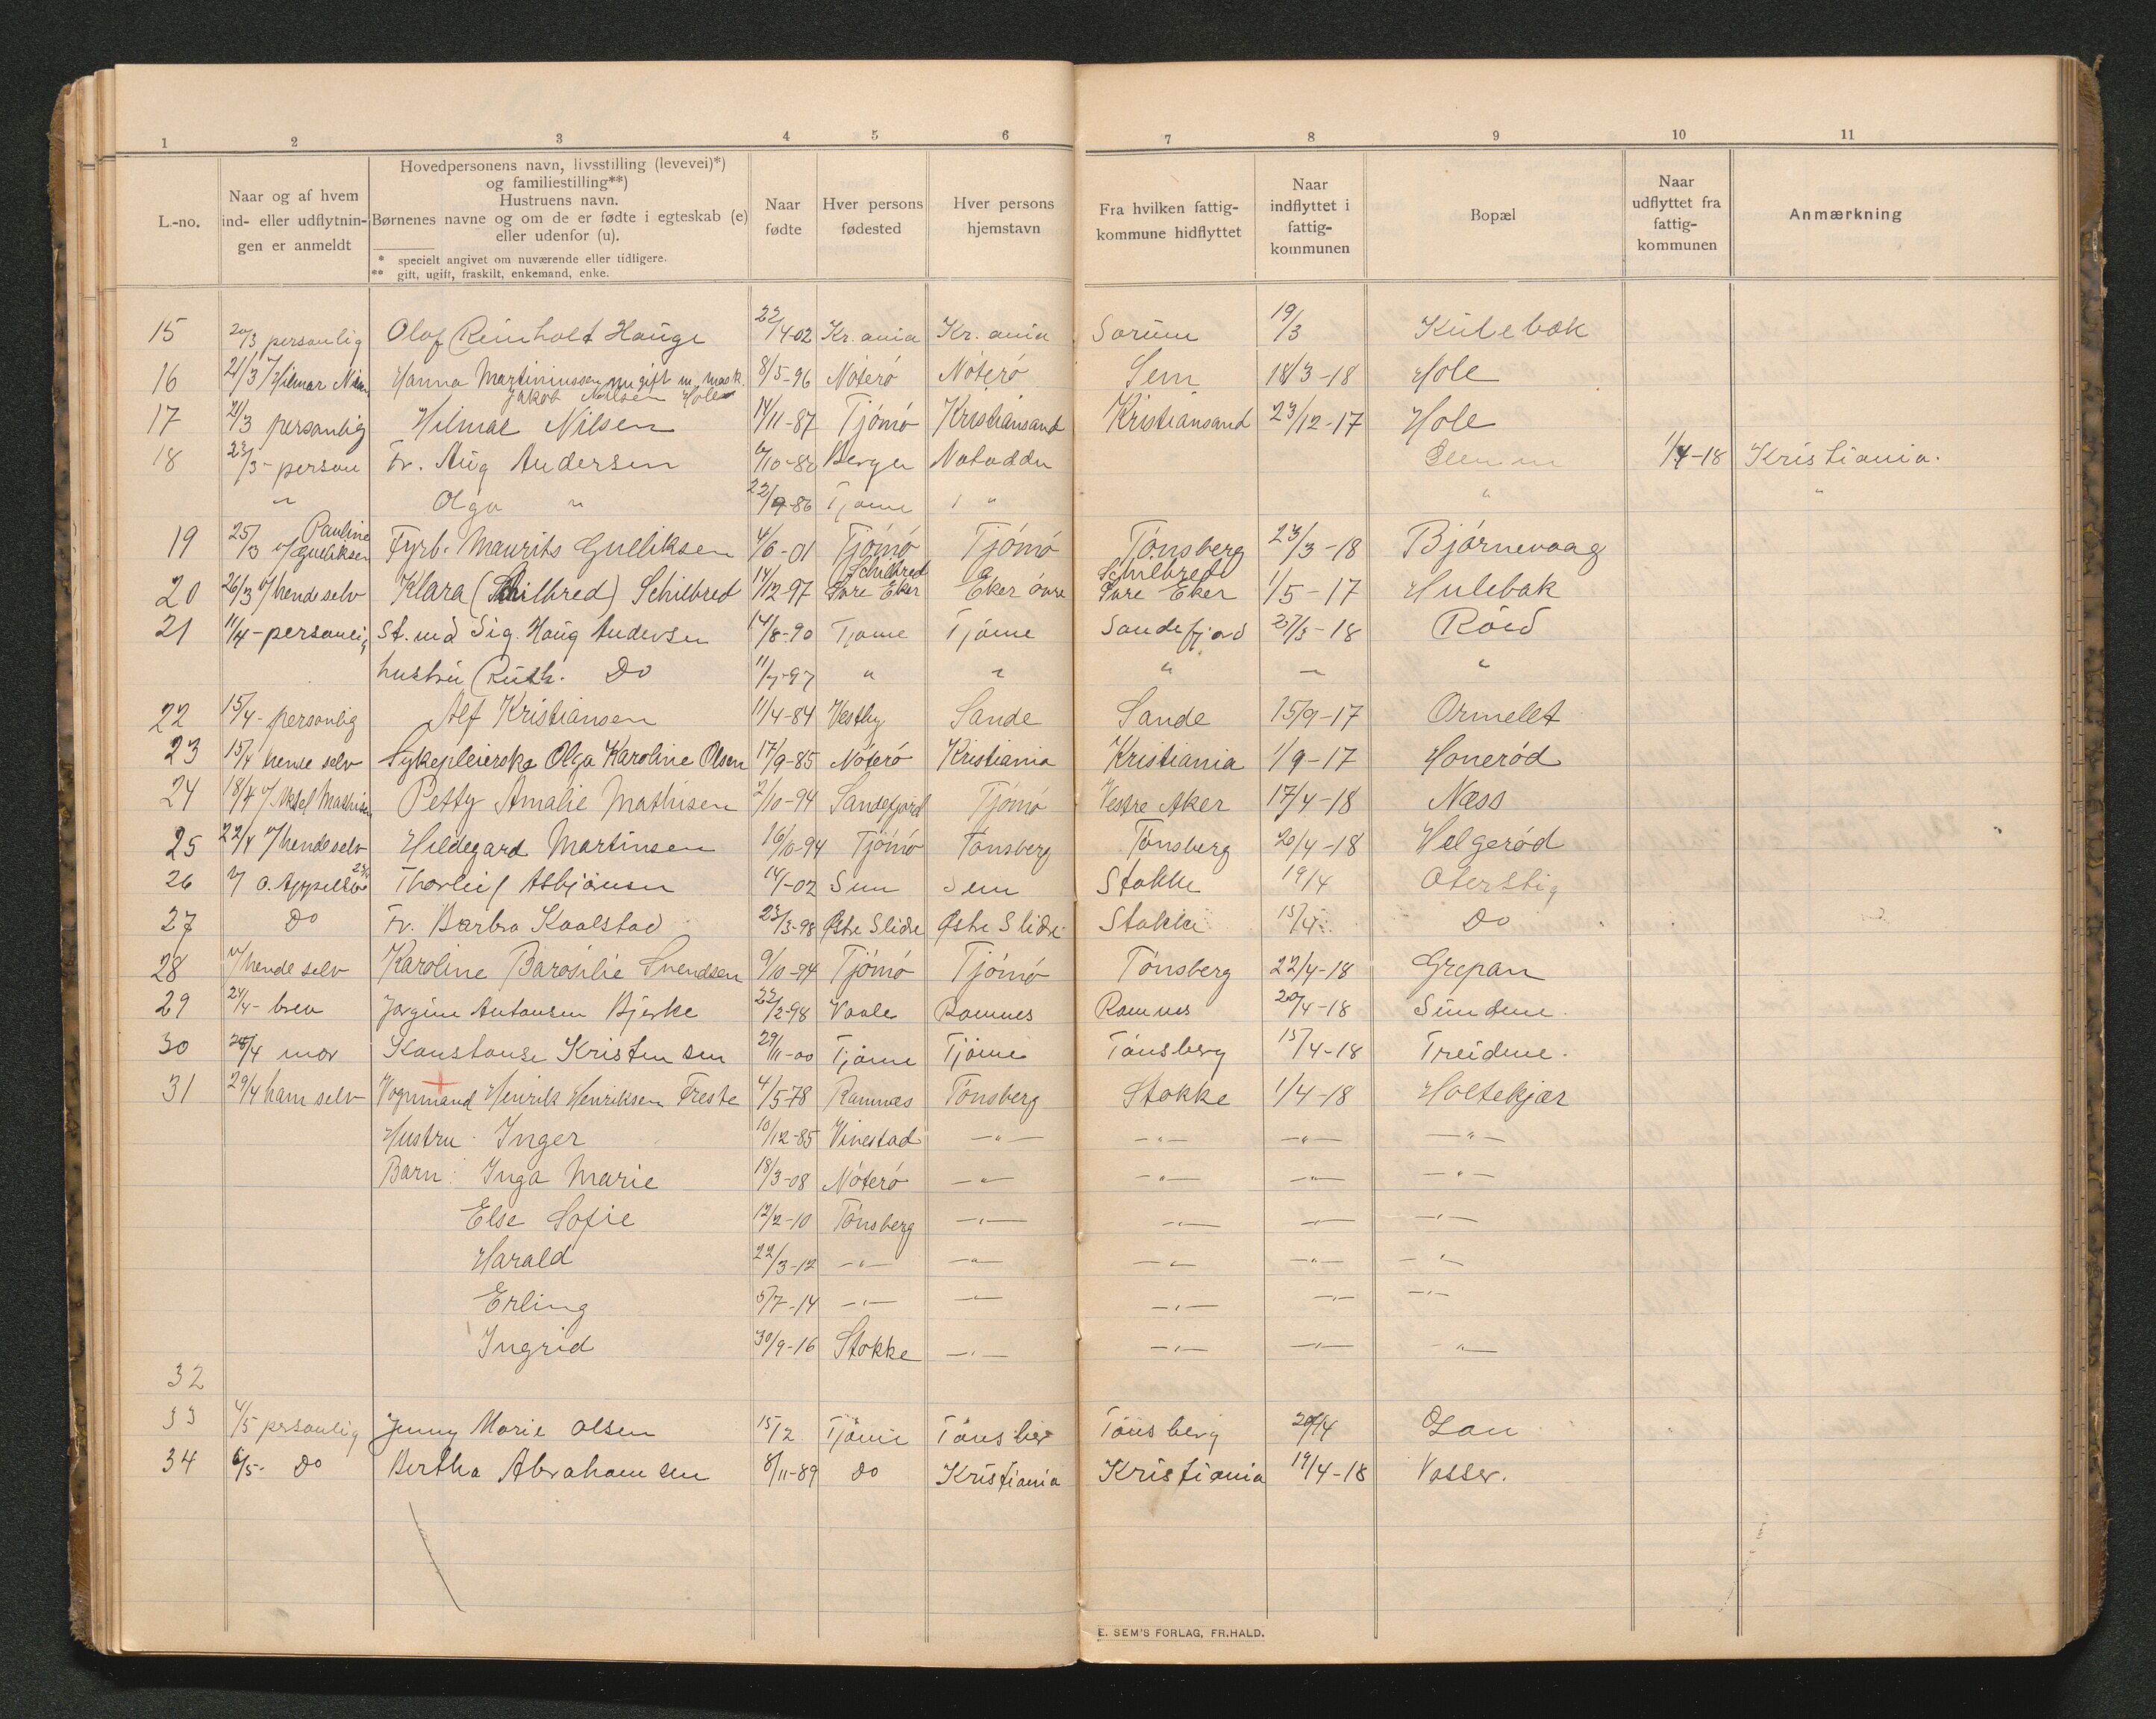 1 2 3 4 5 6 7 8 9 10 11
L.-no.
Naar og af hvem
ind- eller udflytnin-
gen er anmeldt
Hovedpersonens navn, livsstilling (levevei)*)
og familiestilling**)
Hustruens navn.
Børnenes navne og om de er fødte i egteskab (e)
eller udenfor (u).
* specielt angivet om nuværende eller tidligere.
** gift, ugift, fraskilt, enkemand, enke.
Naar
fødte
Hver persons
fødested
Hver persons
hjemstavn
Fra hvilken fattig-
kommune hidflyttet
Naar
indflyttet i
fattig-
kommunen
Bopæl
Naar
udflyttet fra
fattig-
kommunen
Anmærkning
15 20/3 personlig Olof Reinholt Hauge 22/4-02 Kr.ania Kr.ania Sørum 19/3
16 21/3 v/ Hilmar Hanna Martiniussen nu gift m. mask. 8/5-96 Nøterø Nøterø Sem 18/3-18 Hole
Jakob Nilsen Hole
17 21/3 personlig Hilmar Nilsen 14/11-87 Tjømø Kristiansand Kristiansand 23/12-17 Hole
18 23/3- person Fr. Aug Andersen Notodden 1/4-18 Kristiania.
" Olga " 22/9-86 Tjøme " " "
19 25/3 v/ Pauline Gulliksen Fyrb. Maurits Gulliksen 4/6-01 Tjømø Tjømø Tønsberg 23/3-18 Bjørnevaag
20 26/3 v/ hende selv Klara (Schilbred) Schilbred 14/12-97 Øvre Eker Eker øvre Øvre Eker 1/5-17 Hulebak
21 11/4- personlig St.md Sig. Haug Andersen 14/8-90 Tjøme Tjøme Sandefjord 27/3-18 Røed
hustru Ruth. Do 11/7-97 " " " "
22 15/4- personlig Alf Kristiansen 11/4-84 Vestby Sande Sande 15/9-17 Ormelet
23 15/4 hende selv Sykepleierske Olga Karoline Olsen 17/9-85 Nøterø Kristiania Kristiania 1/9-17 Honerød
24 18/4 v/ Aksel Mathisen Petty Amalie Mathisen 2/10-94 Sandefjord Tjømø Vestre Aker 17/4-18 Næss
25 22/4 v/ hende selv Hildegard Martinsen 16/10-94 Tjømø Tønsberg Tønsberg 20/4-18 Helgerød
26 v/ O. Thorleif Asbjønsen Sem Sem Stokke 19/4 Oterstig
27 Do Fr. Barbro Kaalstad 23/3-98 Østre Slidre Østre Slidre Stokke 15/4 Do
28 v/ hende selv Karoline Barosilie Svendsen 9/10-94 Tjømø Tjømø Tønsberg 22/4-18 Grepan
29 24/4- brev Jørgine Antonsen Bjerke 22/2-98 Vaale Ramnes Ramnes 20/4-18 Sundene.
30 28/4 mor Konstanse Kristensen 29/11-00 Tjøme Tjøme Tønsberg 15/4-18 Treidene.
31 29/4 ham selv Vognmand Henrik Henriksen Freste 4/5-78 Ramnæs Tønsberg Stokke 1/4-18 Holtekjær
Hustru: Inger 10/12-85 Vivestad -"- -"- -"- -"-
Barn: Inga Marie 18/3-08 Nøterø -"- -"- -"- -"-
Else Sofie 12/2-10 Tønsberg -"- -"- -"- -"-
Harald 22/3-12 -"- -"- -"- -"- -"-
Erling 5/7-14 -"- -"- -"- -"- -"-
Ingrid 30/9-16 Stokke -"- -"- -"- -"-
32
33 4/5 personlig Jenny Marie Olsen 15/12 Tjøme Tønsber Tønsberg 20/4
34 6/5- Do Bertha Abrahamsen 8/11-89 Do Kristiania Kristiania 19/4-18 Vasser.
E. SEM'S FORLAG, FR.HALD.